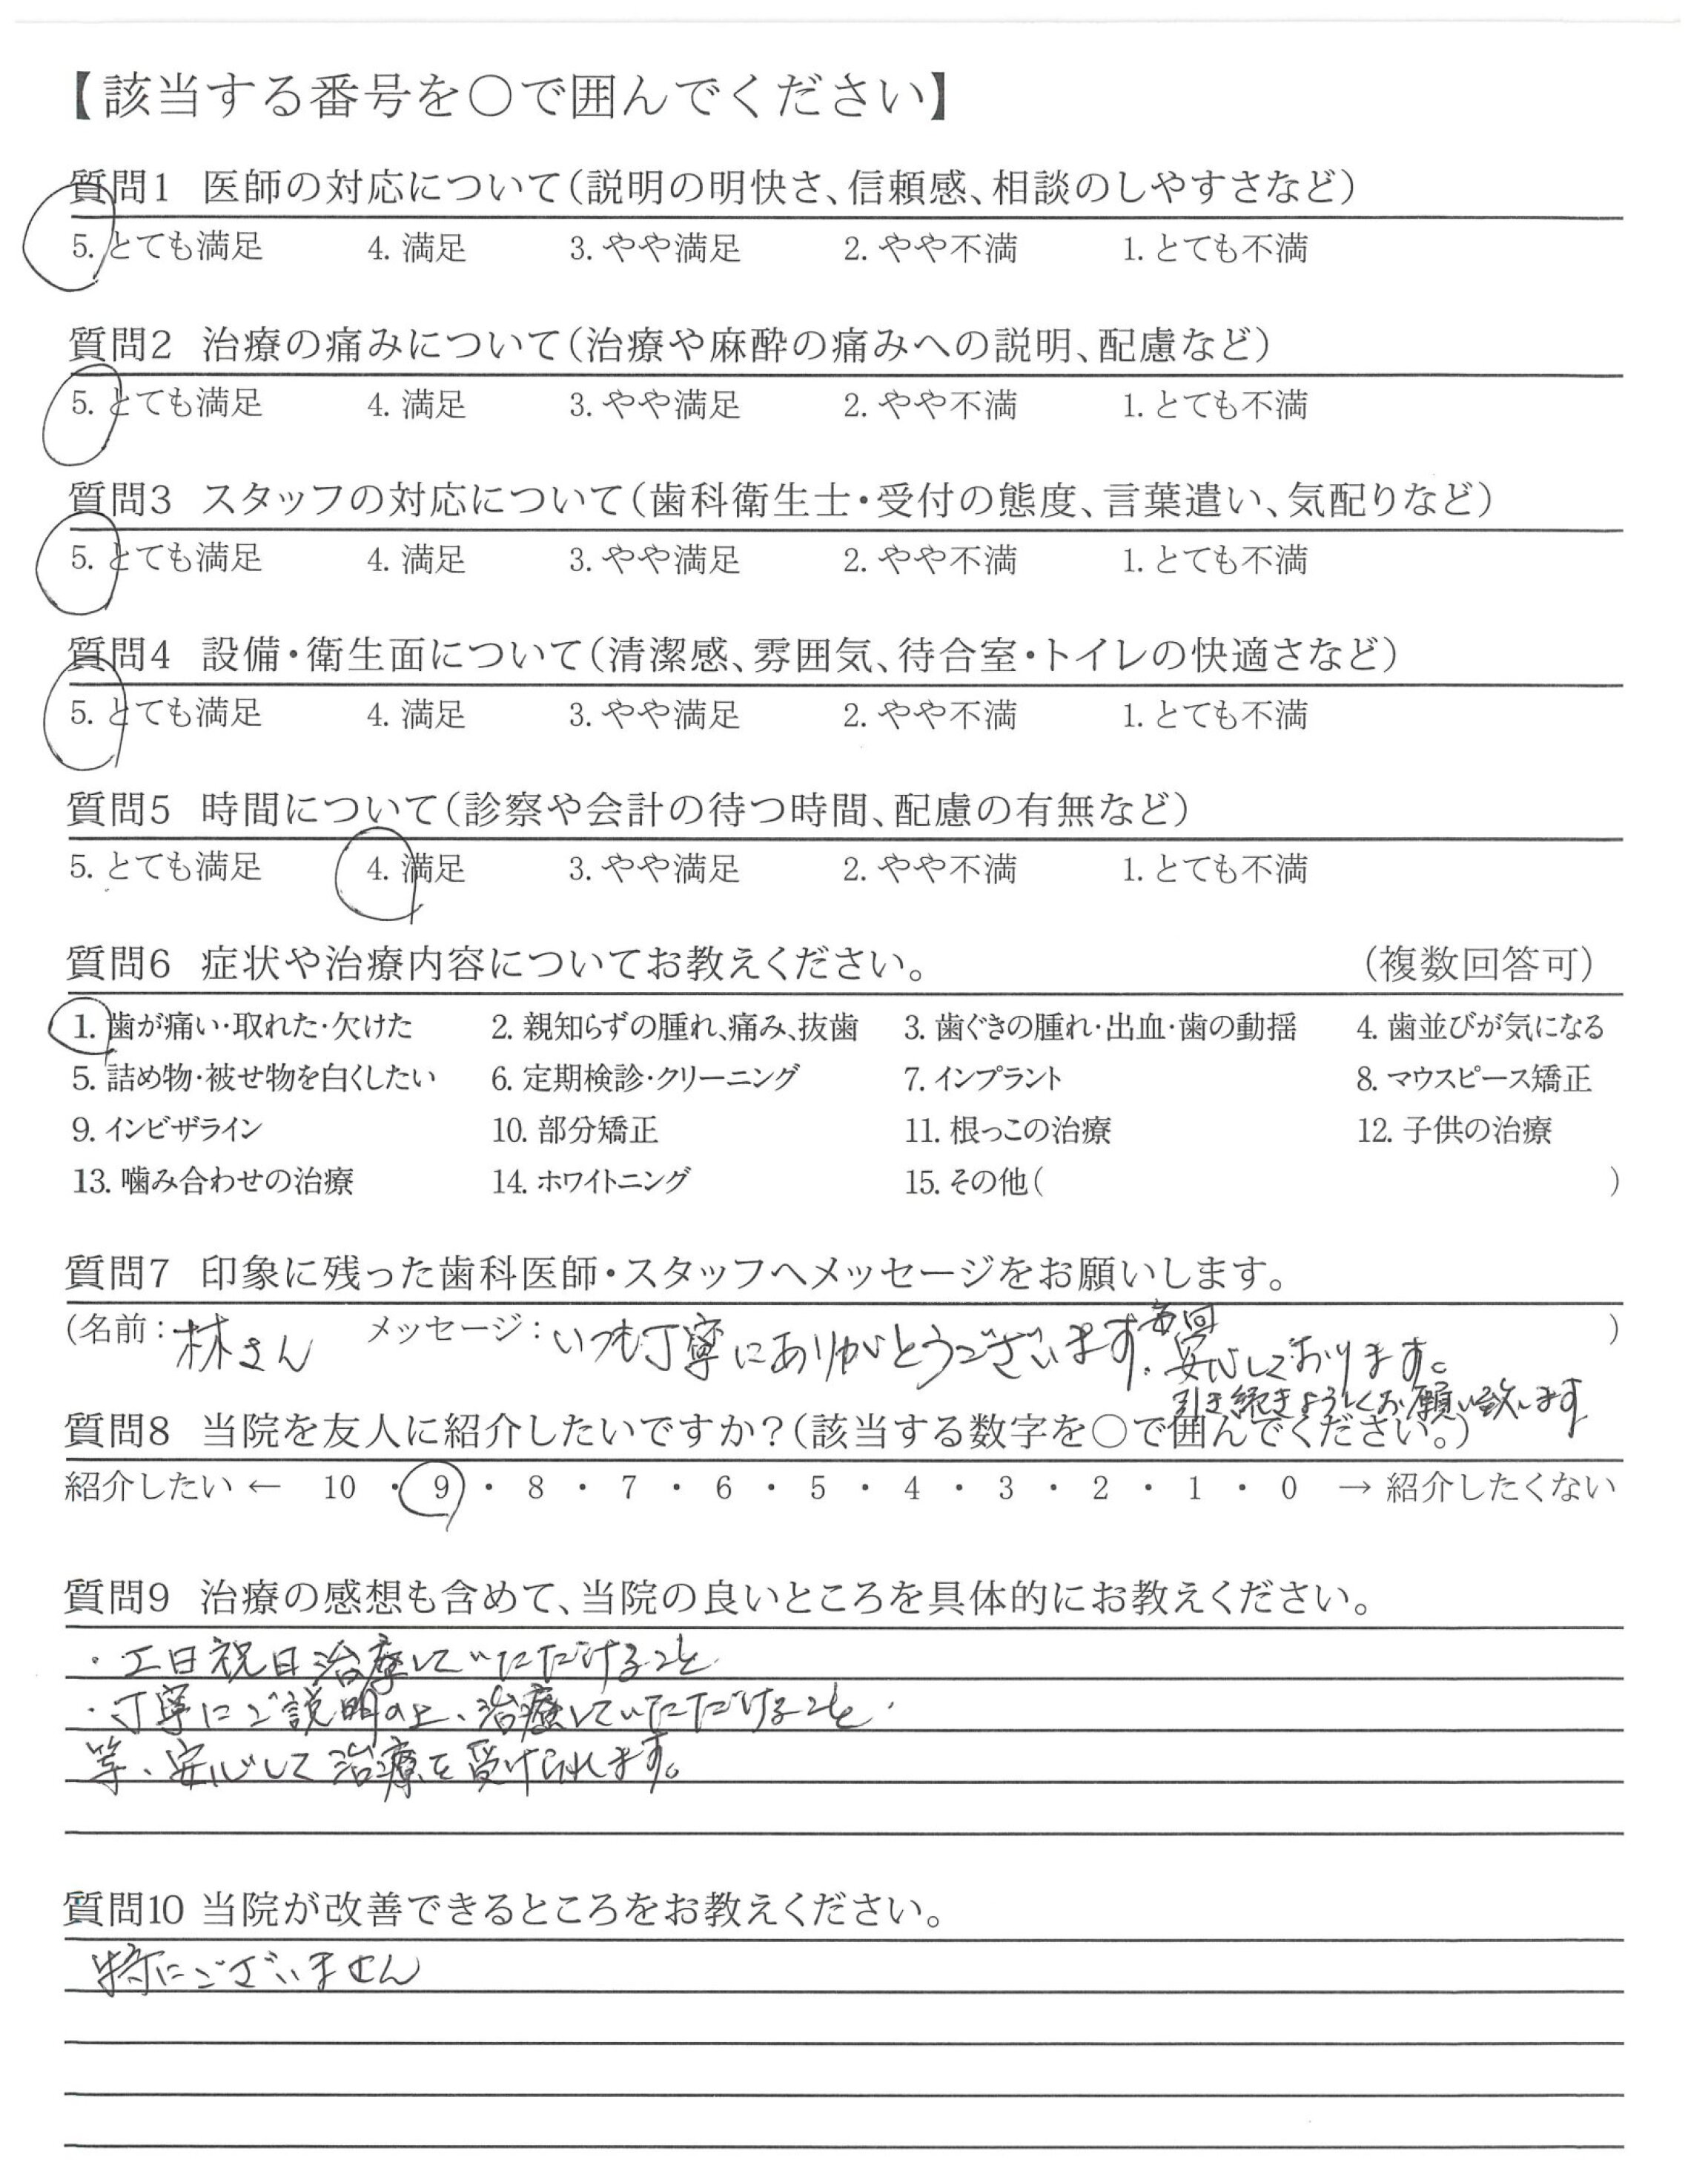 【該当する番号を○で囲んでください】
質問1 医師の対応について(説明の明快さ、信頼感、相談のしやすさなど)
5. とても満足 4. 満足 3. やや満足 2. やや不満 1. とても不満
質問2 治療の痛みについて(治療や麻酔の痛みへの説明、配慮など)
5. とても満足 4. 満足 3. やや満足 2. やや不満 1. とても不満
質問3 スタッフの対応について(歯科衛生士・受付の態度、言葉遣い、気配りなど)
5. とても満足 4. 満足 3. やや満足 2. やや不満 1. とても不満
質問4 設備・衛生面について(清潔感、雰囲気、待合室・トイレの快適さなど)
5. とても満足 4. 満足 3. やや満足 2. やや不満 1. とても不満
質問5 時間について(診察や会計の待つ時間、配慮の有無など)
5. とても満足 4. 満足 3. やや満足 2. やや不満 1. とても不満
質問6 症状や治療内容についてお教えください。 (複数回答可)
1. 歯が痛い・取れた・欠けた 2. 親知らずの腫れ、痛み、抜歯 3. 歯ぐきの腫れ・出血・歯の動揺 4. 歯並びが気になる
5. 詰め物・被せ物を白くしたい 6. 定期検診・クリーニング 7. インプラント 8. マウスピース矯正
9. インビザライン 10. 部分矯正 11. 根っこの治療 12. 子供の治療
13. 噛み合わせの治療 14. ホワイトニング 15. その他( )
質問7 印象に残った歯科医師・スタッフへメッセージをお願いします。
(名前: 林さん メッセージ: いつも丁寧にありがとうございます。毎回安心しております。 )
引き続きよろしくお願い致します
質問8 当院を友人に紹介したいですか?(該当する数字を○で囲んでください。)
紹介したい ← 10 ・ 9 ・ 8 ・ 7 ・ 6 ・ 5 ・ 4 ・ 3 ・ 2 ・ 1 ・ 0 → 紹介したくない
質問9 治療の感想も含めて、当院の良いところを具体的にお教えください。
・土日祝日治療していただけること
・丁寧にご説明の上、治療していただけること
等、安心して治療を受けられます。
質問10 当院が改善できるところをお教えください。
特にございません